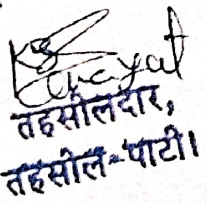 तहसीलदार,
तहसील-पाटी।